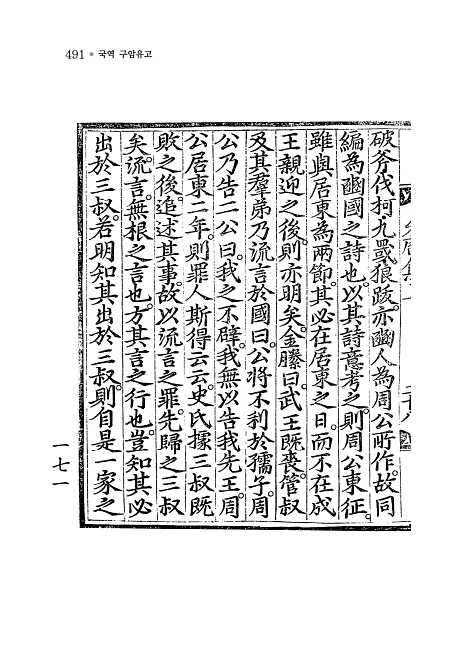 491 ● 국역 구암유고
破斧伐柯九罭狼跋亦豳人為周公所作故同
編為豳國之詩也以其詩意考之則周公東征
雖與居東為兩節其必在居東之日而不在成
王親迎之後則亦明矣金縢曰武王旣喪管叔
及其羣弟乃流言於國曰公將不利於孺子周
公乃告二公曰我之不辟我無以告我先王周
公居東二年則罪人斯得云云史氏據三叔旣
敗之後追述其事故以流言之罪先歸之三叔
矣流言無根之言也方其言之行也豈知其必
出於三叔若明知其出於三叔則自是一家之
一七一